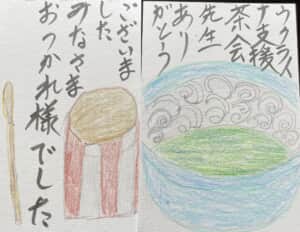 ウクライ
ナ支援
茶会
先生
あり
がとう
ございま
した
みなさま
おつかれ様でした